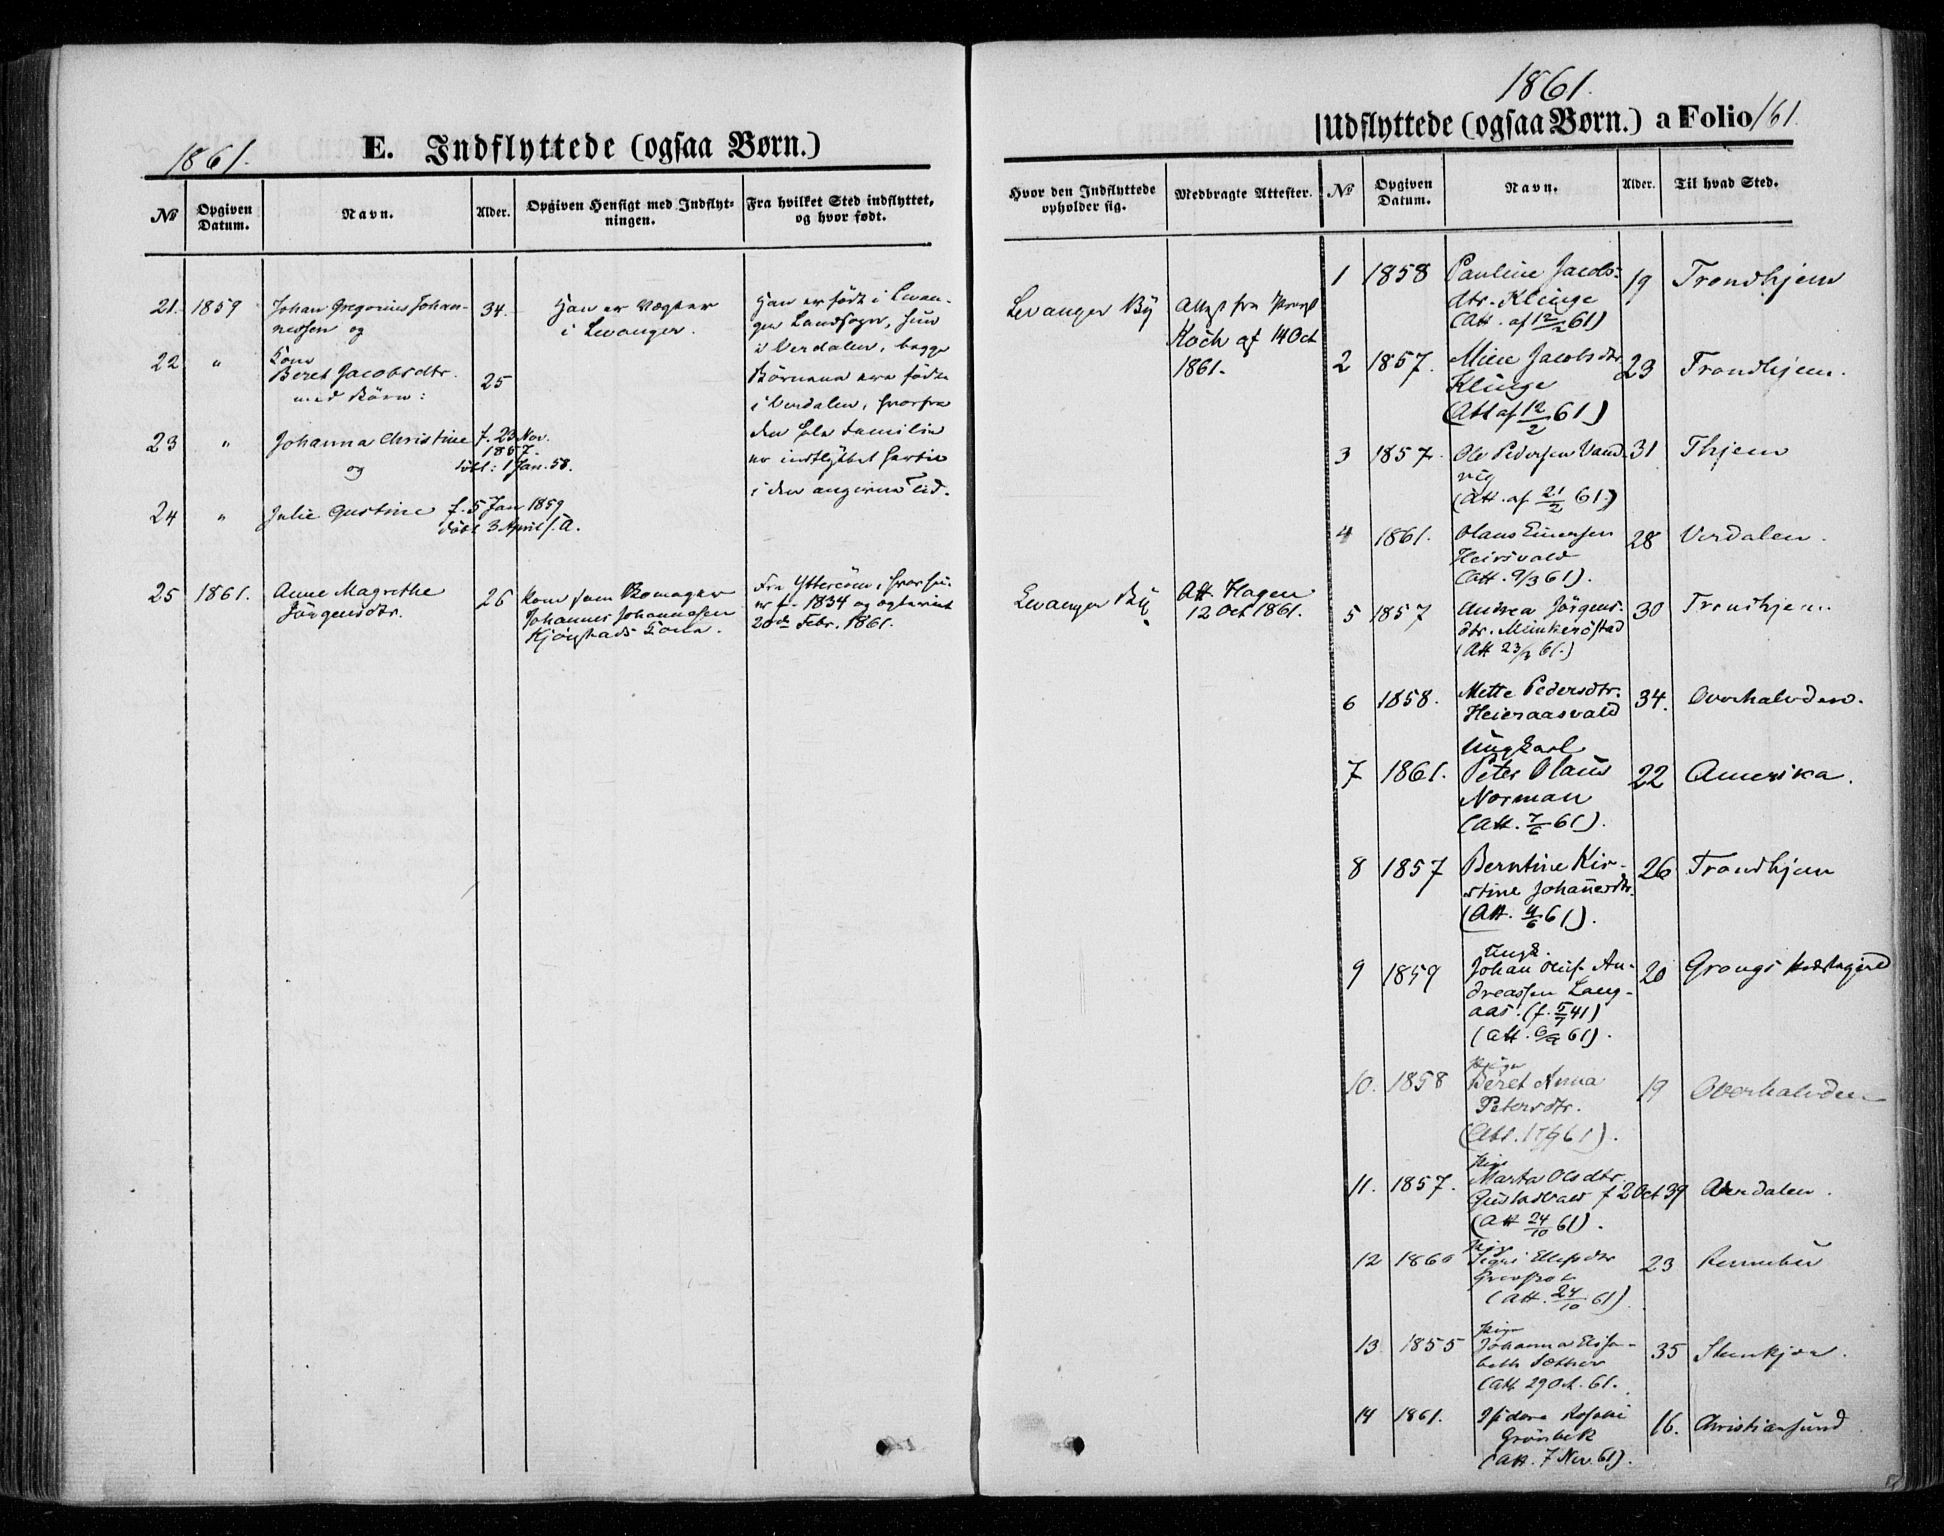 1861.
E. Indflyttede (ogsaa Børn.)
№ Opgiven Datum. Navn. Alder. Opgiven Hensigt med Indflyt-ningen. Fra hvilket Sted indflyttet, og hvor født.
21. 1859 Johan Gregorius Johan- 34. Han er Vægter Han er født i Levan-
nessen og i Levanger. ger Landsogn, hun
22 " Kone i Verdalen, begge
Beret Jacobsdtr. 25 Børnene ere fødte
med Børn: i Verdalen, hvorfra
23 " Johanna Christine f. 23 Nov. den hele Familie
1857. er indflyttet hertil
og døbt: 1 Jan. 58. i den angivne Tid.
24 " Julie Gustine f. 5 Jan 1859
døbt 3 April s. A.
25 1861. Anne Magrethe 26 Kom som Skomager Fra Ytterøen, hvor hun
Jörgensdtr. Johannes Johannessen er f. 1834 og
Kjöglstads Kone. 20de Febr. 1861.
1861.
Udflyttede (ogsaa Børn.) a Folio 161.
Hvor den Indflyttede opholder sig. Medbragte Attester. № Opgiven Datum. Navn. Alder. Til hvad Sted.
Levanger By Attest fra Provst
Koch af 14 Oct
1861.
Levanger By Att. Hagen
12 Oct 1861.
1 1858 Pauline Jacobs- 19 Trondhjem
dtr. Klinge
(Att. af 12/2 61)
2 1857. Mine Jacobsdtr 23 Trondhjem.
Klinge
(Att af 12/2 61)
3 1857. Ole Pedersen Vand- 31 Thjem
vig
(Att. af 21/2 61.)
4 1861. Olaus Einersen 28 Verdalen.
(Att. 9/3 61).
5 1857 Andrea Jörgens- 30 Trondhjem.
dtr. Munkeröstad
(Att 23/ 61.)
6 1858. Mette Pedersdtr. 34. Overhalvden.
Heieraasvald
7 1861. Ungkarl
Peter Olaus 22 Amerika.
Norman
(Att. 7/6 61).
8 1857 Berntine Kir- 26 Trondhjem
stine Johannesdtr.
(Att. 4/6 61).
9 1859 Ungk.
Johan Oluf An- 20 Grongs Præstegjeld
dreassen Lang-
aas. (f. 5/7 41)
(Att. 6/9 61).
10. 1858 Pige
Beret Anna 19 Overhalvden
Petersdtr.
(Att. 61).
11. 1857. Pige
Marta Olsdtr. Verdalen.
f 2 Oct 39
(Att 24/10 61).
12 1860 Pige
23 Rennebu
(Att. 24/10 61).
13 1855 Pige
Johanna Elisa- 35 Stenkjær.
beth Sæther
(Att 29 Oct. 61.
14 1861. Isidora 16. Christiansund
Grönbek
(Att. 7 Nov. 61).